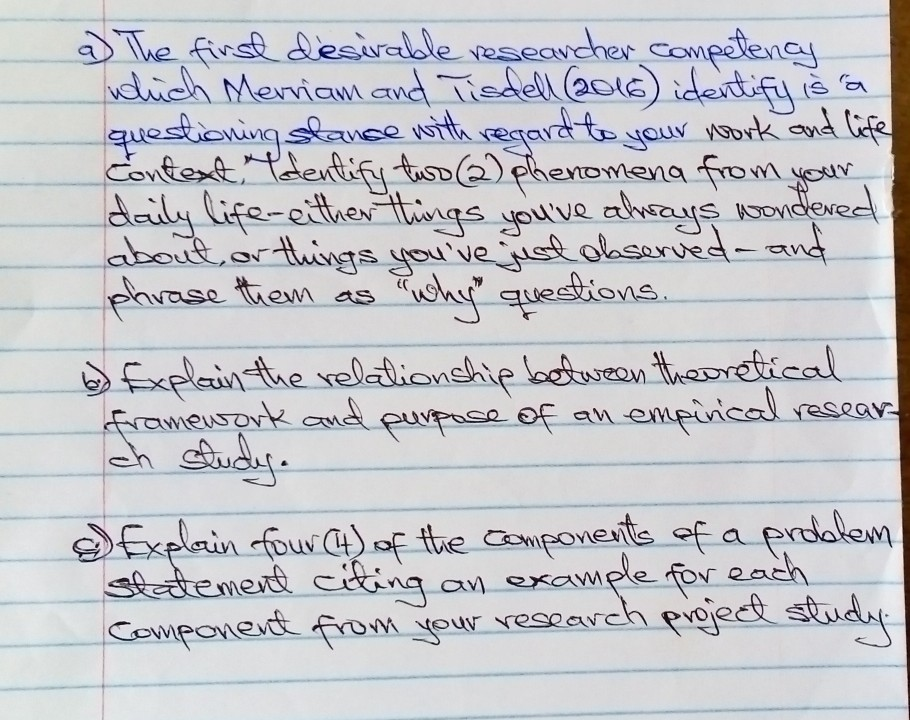 a) The first desirable researcher competency
which Merriam and Tisdell (2016) identify is "a
questioning stance with regard to your work and life
context." Identify two (2) phenomena from your
daily life - either things you've always wondered
about, or things you've just observed - and
phrase them as "why" questions.
b) Explain the relationship between theoretical
framework and purpose of an empirical resear-
ch study.
c) Explain four (4) of the components of a problem
statement citing an example for each
component from your research project study.